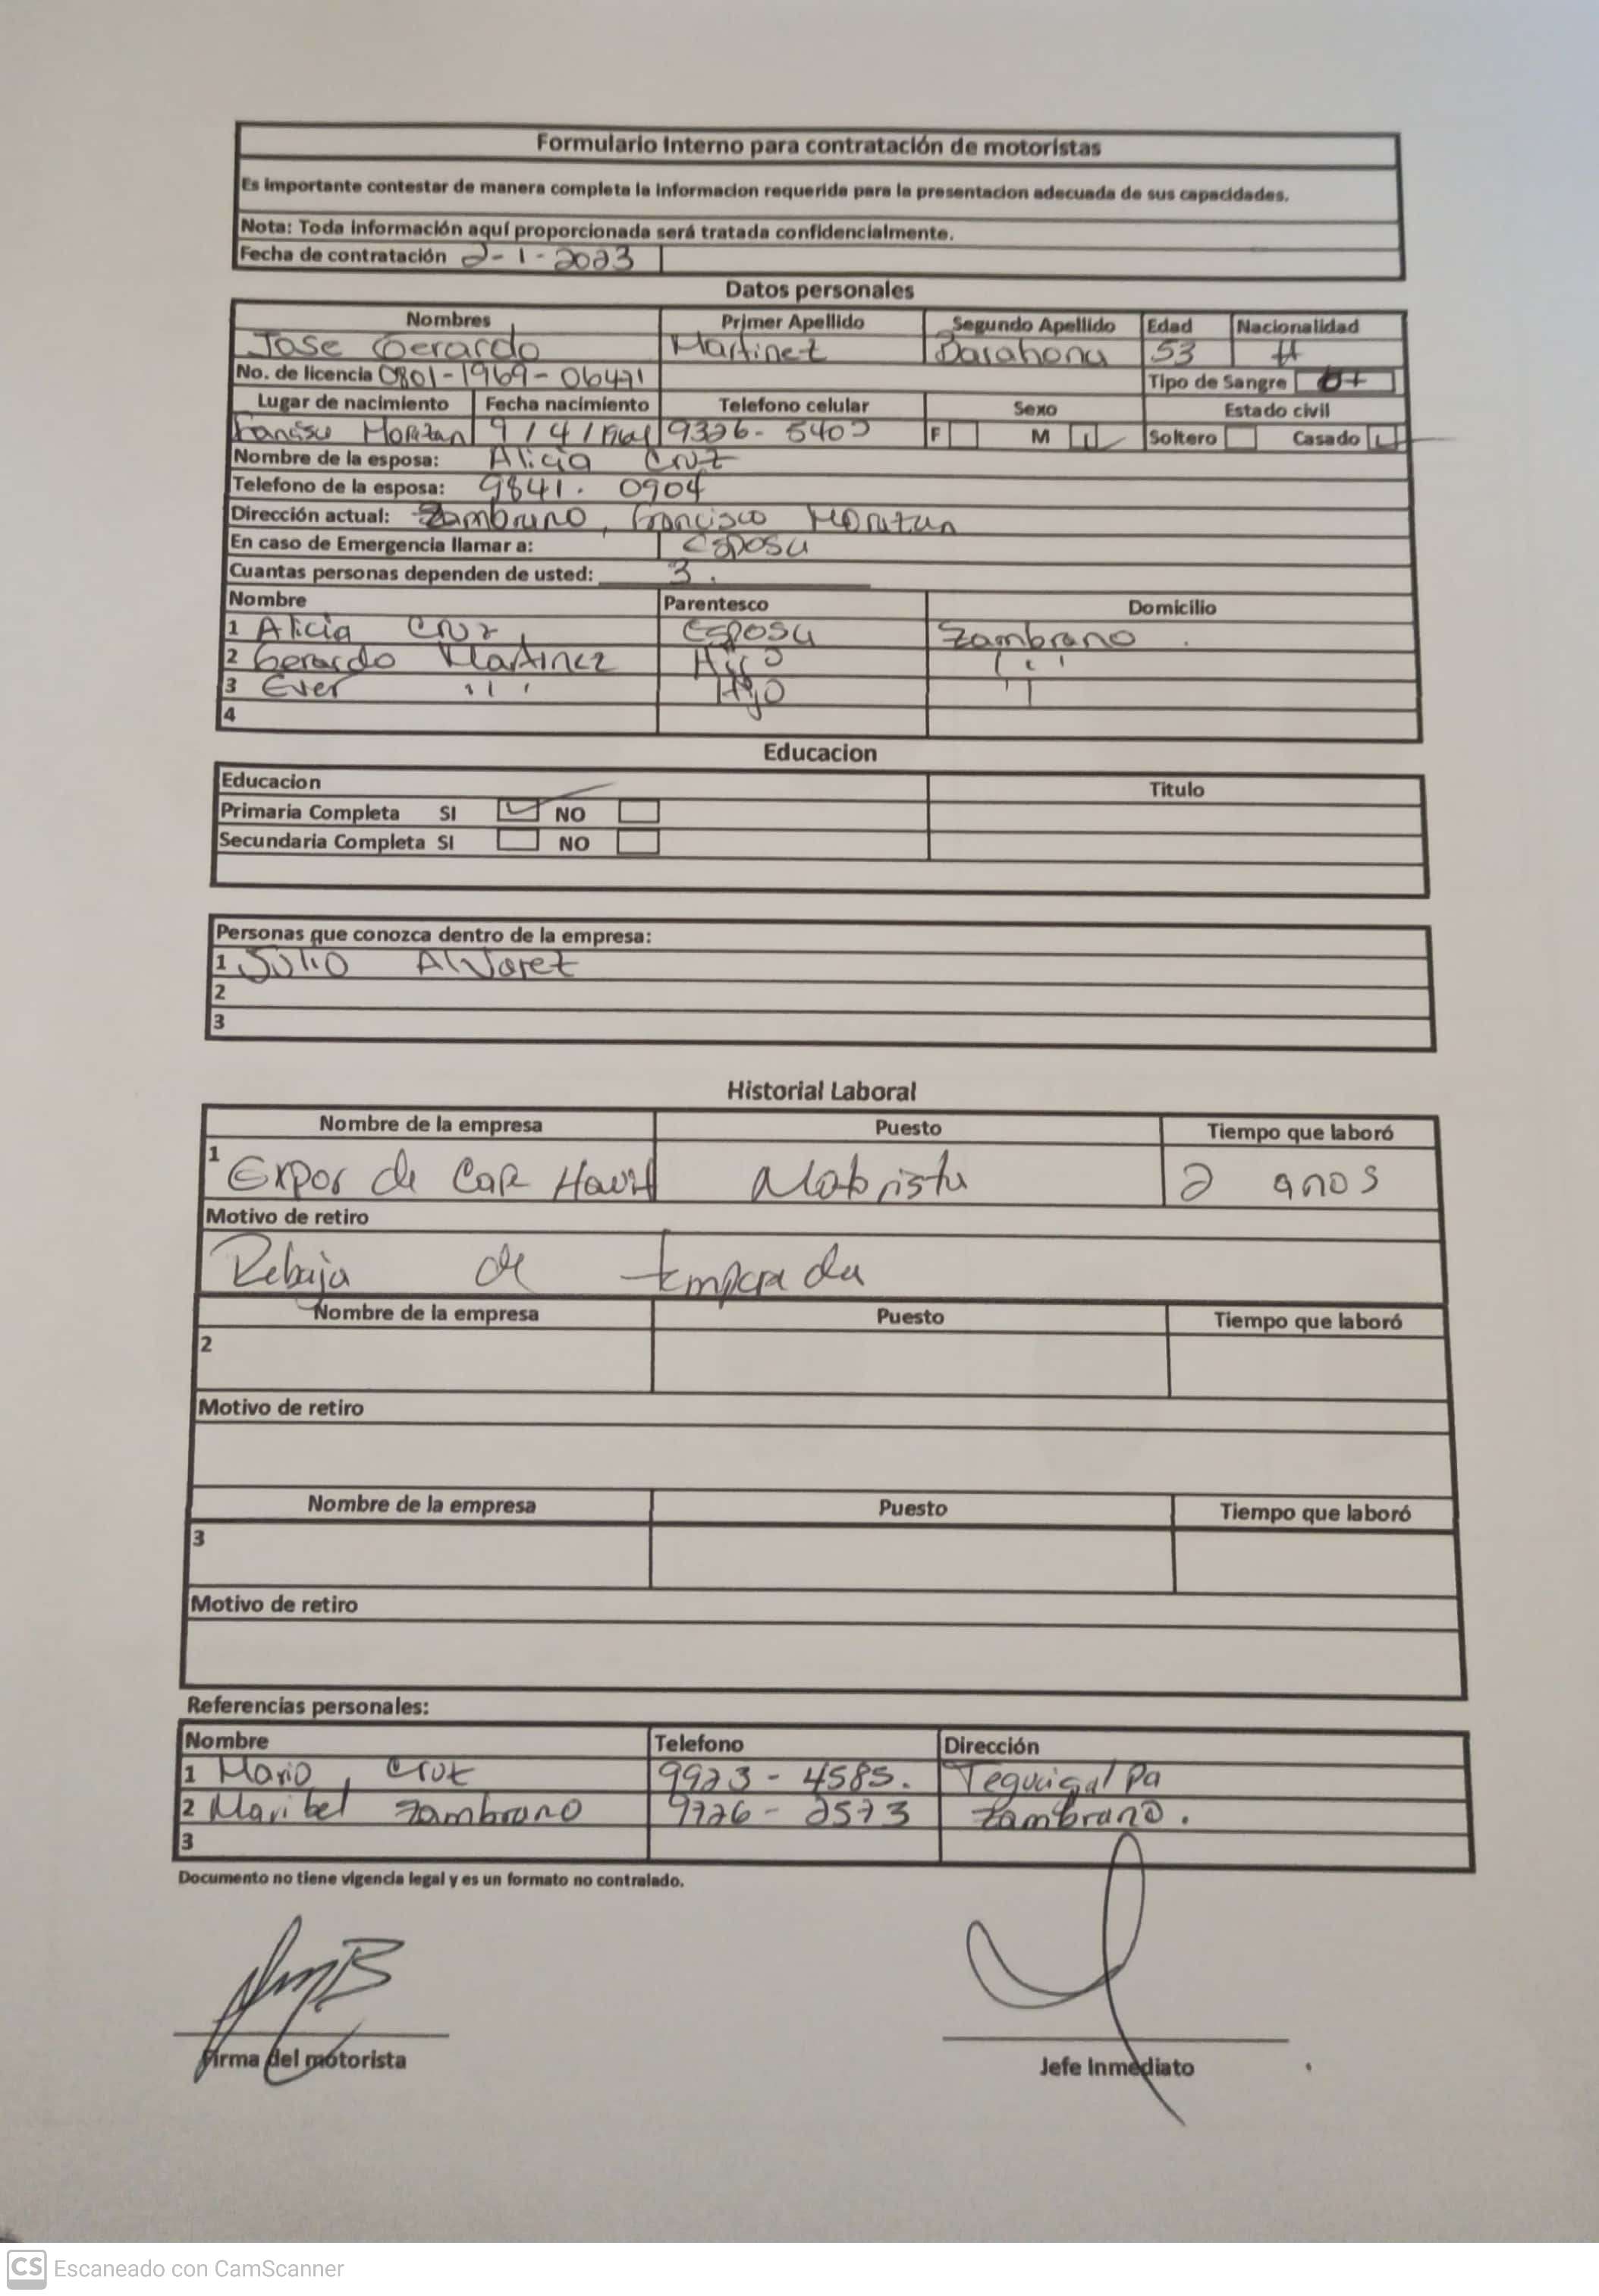 Formulario Interno para contratación de motoristas
Es importante contestar de manera completa la informacion requerida para la presentacion adecuada de sus capacidades.
Nota: Toda información aquí proporcionada será tratada confidencialmente.
Fecha de contratación 2-1-2023
Datos personales
Nombres Primer Apellido Segundo Apellido Edad Nacionalidad
Jose Gerardo Martinez Barahona 53 H
No. de licencia 0801-1969-06471 Tipo de Sangre
Lugar de nacimiento Fecha nacimiento Telefono celular Sexo Estado civil
Morazan 9/4/ 9326- F M Soltero Casado
Nombre de la esposa: Alicia Cruz
Telefono de la esposa: 9841. 0904
Dirección actual: Zambrano, Francisco Morazan
En caso de Emergencia llamar a: Esposa
Cuantas personas dependen de usted: 3.
Nombre Parentesco Domicilio
1 Alicia Cruz Esposa Zambrano.
2 Gerardo Martinez Hijo
3 Ever Hijo
4
Educacion
Educacion Titulo
Primaria Completa SI NO
Secundaria Completa SI NO
Personas que conozca dentro de la empresa:
1 Julio Alvarez
2
3
Historial Laboral
Nombre de la empresa Puesto Tiempo que laboró
1 Expor de Cafe Motorista 2 anos
Motivo de retiro
Rebaja de temporada
Nombre de la empresa Puesto Tiempo que laboró
2
Motivo de retiro
Nombre de la empresa Puesto Tiempo que laboró
3
Motivo de retiro
Referencias personales:
Nombre Telefono Dirección
1 Mario Cruz 9923-4585. Tegucigalpa
2 Maribel Zambrano 9726-2573 Zambrano.
3
Documento no tiene vigencia legal y es un formato no contralado.
Firma del motorista Jefe Inmediato
CS Escaneado con CamScanner